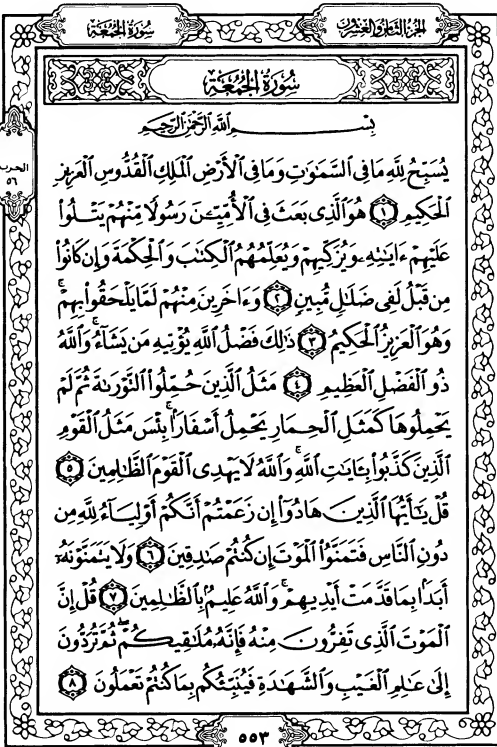 سُورَةُ الجُمُعَةِ
الجزء الثامن والعشرون
سُورَةُ الجُمُعَةِ
بِسْمِ اللَّهِ الرَّحْمَٰنِ الرَّحِيمِ
يُسَبِّحُ لِلَّهِ مَا فِي السَّمَٰوَٰتِ وَمَا فِي الْأَرْضِ الْمَلِكِ الْقُدُّوسِ الْعَزِيزِ
الْحَكِيمِ ١ هُوَ الَّذِي بَعَثَ فِي الْأُمِّيِّـۧنَ رَسُولًا مِّنْهُمْ يَتْلُوا۟
عَلَيْهِمْ ءَايَٰتِهِۦ وَيُزَكِّيهِمْ وَيُعَلِّمُهُمُ الْكِتَٰبَ وَالْحِكْمَةَ وَإِن كَانُوا۟
مِن قَبْلُ لَفِي ضَلَٰلٍ مُّبِينٍ ٢ وَءَاخَرِينَ مِنْهُمْ لَمَّا يَلْحَقُوا۟ بِهِمْ ۚ
وَهُوَ الْعَزِيزُ الْحَكِيمُ ٣ ذَٰلِكَ فَضْلُ اللَّهِ يُؤْتِيهِ مَن يَشَآءُ ۚ وَاللَّهُ
ذُو الْفَضْلِ الْعَظِيمِ ٤ مَثَلُ الَّذِينَ حُمِّلُوا۟ التَّوْرَىٰةَ ثُمَّ لَمْ
يَحْمِلُوهَا كَمَثَلِ الْحِمَارِ يَحْمِلُ أَسْفَارًۢا ۚ بِئْسَ مَثَلُ الْقَوْمِ
الَّذِينَ كَذَّبُوا۟ بِـَٔايَٰتِ اللَّهِ ۚ وَاللَّهُ لَا يَهْدِي الْقَوْمَ الظَّٰلِمِينَ ٥
قُلْ يَٰٓأَيُّهَا الَّذِينَ هَادُوٓا۟ إِن زَعَمْتُمْ أَنَّكُمْ أَوْلِيَآءُ لِلَّهِ مِن
دُونِ النَّاسِ فَتَمَنَّوُا۟ الْمَوْتَ إِن كُنتُمْ صَٰدِقِينَ ٦ وَلَا يَتَمَنَّوْنَهُۥٓ
أَبَدًۢا بِمَا قَدَّمَتْ أَيْدِيهِمْ ۚ وَاللَّهُ عَلِيمٌۢ بِالظَّٰلِمِينَ ٧ قُلْ إِنَّ
الْمَوْتَ الَّذِي تَفِرُّونَ مِنْهُ فَإِنَّهُۥ مُلَٰقِيكُمْ ۖ ثُمَّ تُرَدُّونَ
إِلَىٰ عَٰلِمِ الْغَيْبِ وَالشَّهَٰدَةِ فَيُنَبِّئُكُم بِمَا كُنتُمْ تَعْمَلُونَ ٨
الحزب
٥٦
٥٥٣